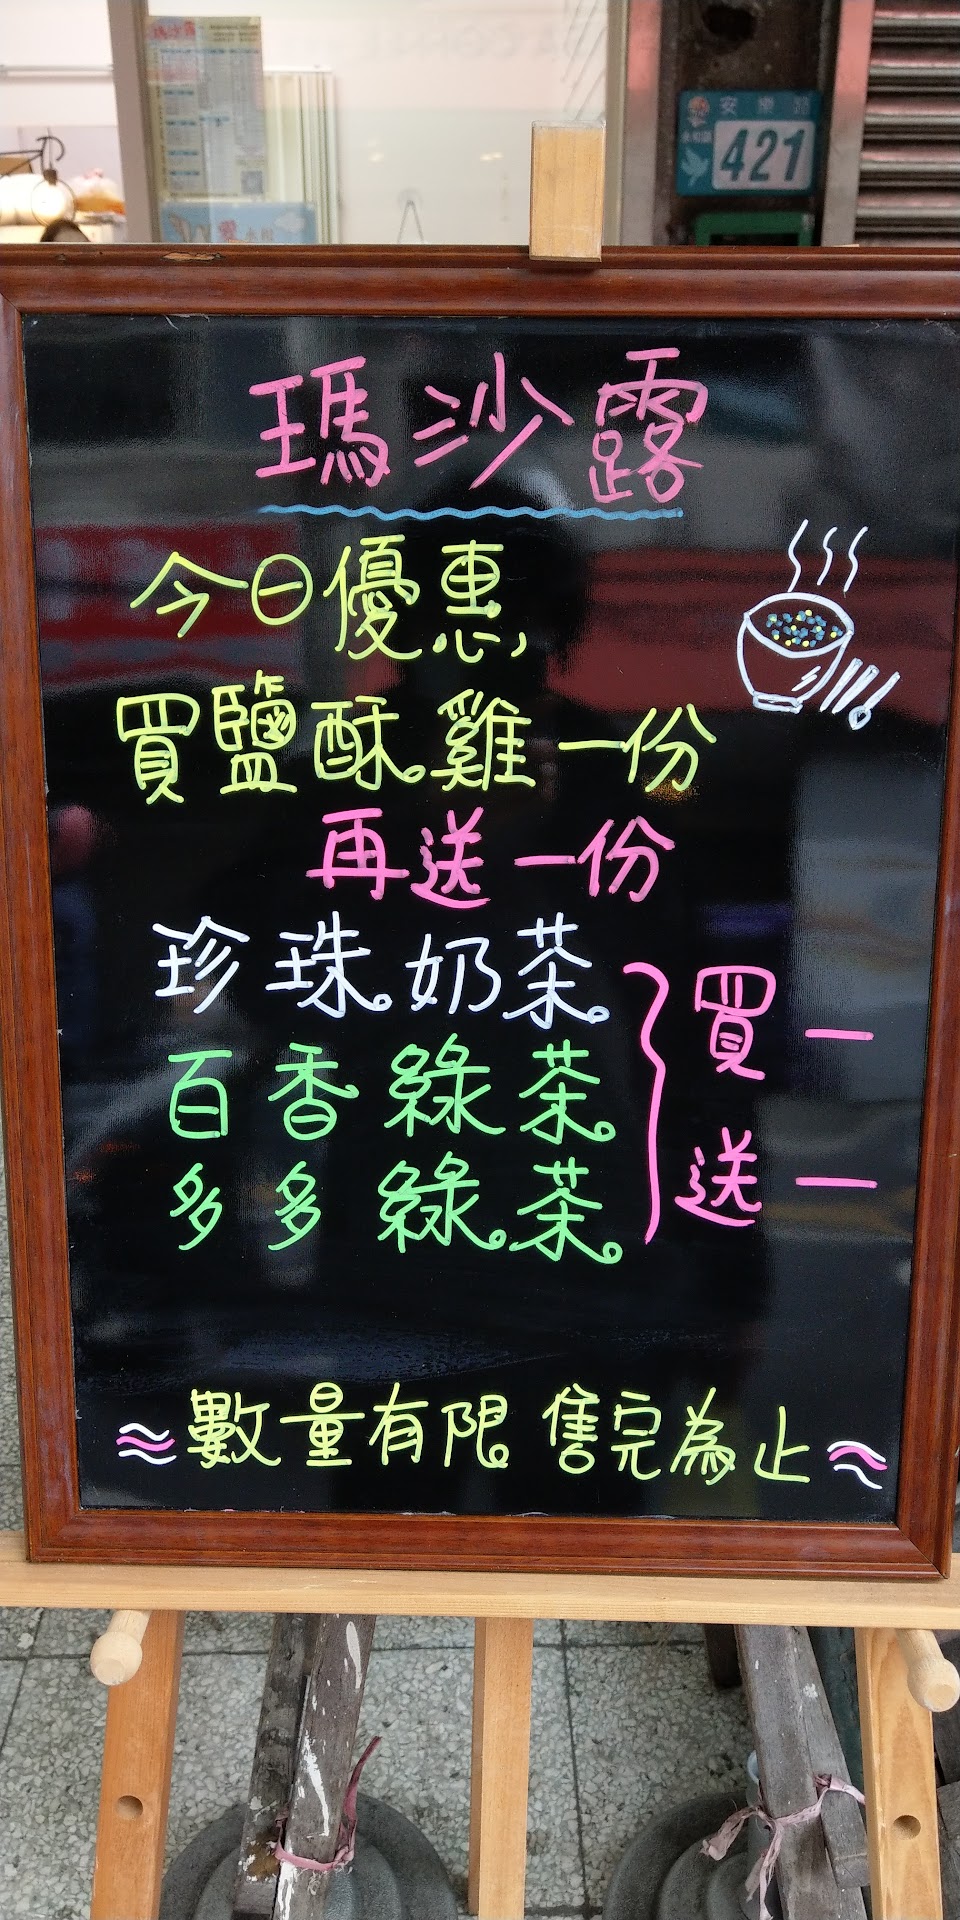 安樂路
永和區
421
瑪沙露
今日優惠
買鹽酥雞一份
再送一份
珍珠奶茶
百香綠茶
多多綠茶
買一
送一
數量有限 售完為止